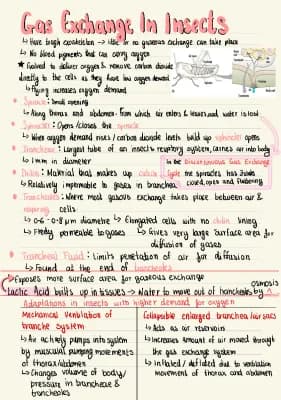 Gas Exchange In Insects
↳ Have tough exoskeleton → little or no gaseous exchange can take place
↳ No blood pigments that can carry oxygen
★ Evolved to deliver oxygen & remove carbon dioxide
directly to the cells as they have low oxygen demand
↳ Flying increases oxygen demand
• Spiracle: Small opening
↳ Along thorax and abdomen. From which air enters & leaves, and water is lost
• Sphincter: Opens/closes the spiracle
↳ When oxygen demand rises / carbon dioxide levels build up sphincter opens
• Tracheae: Largest tube of an insect's respiratory system, carries air into body
↳ 1mm in diameter
In the Discontinuous Gas Exchange
Cycle the spiracles has 3 states
closed, open and fluttering
• Chitin: Material that makes up
↳ Relatively impermable to gases in tracheae
• Tracheoles: Where most gaseous exchange takes place between air &
respiring cells
↳ 0·6-0·8 μm diametre ↳ Elongated cells with no chitin lining
↳ Freely permeable to gases ↳ Gives very large surface area for
diffusion of gases
• Tracheal Fluid: Limits penetration of air for diffusion
↳ Found at the end of tracheoles
↳ Exposes more surface area for gaseous exchange
osmosis
Lactic Acid builds up in tissues → Water to move out of tracheoles by ^
Adaptations in insects with higher demand for oxygen
Mechanical Ventilation of
tranche system
↳ Air actively pumps into system
by muscular pumping movements
of thorax/abdomen
↳ Changes volume of body/
pressure in tracheae &
tracheoles
Collapsible enlarged trachea/air sacs
↳ Acts as air reservoirs
↳ Increases amount of air moved through
the gas exchange system
↳ Inflated/deflated due to ventilation
movements of thorax and abdomen